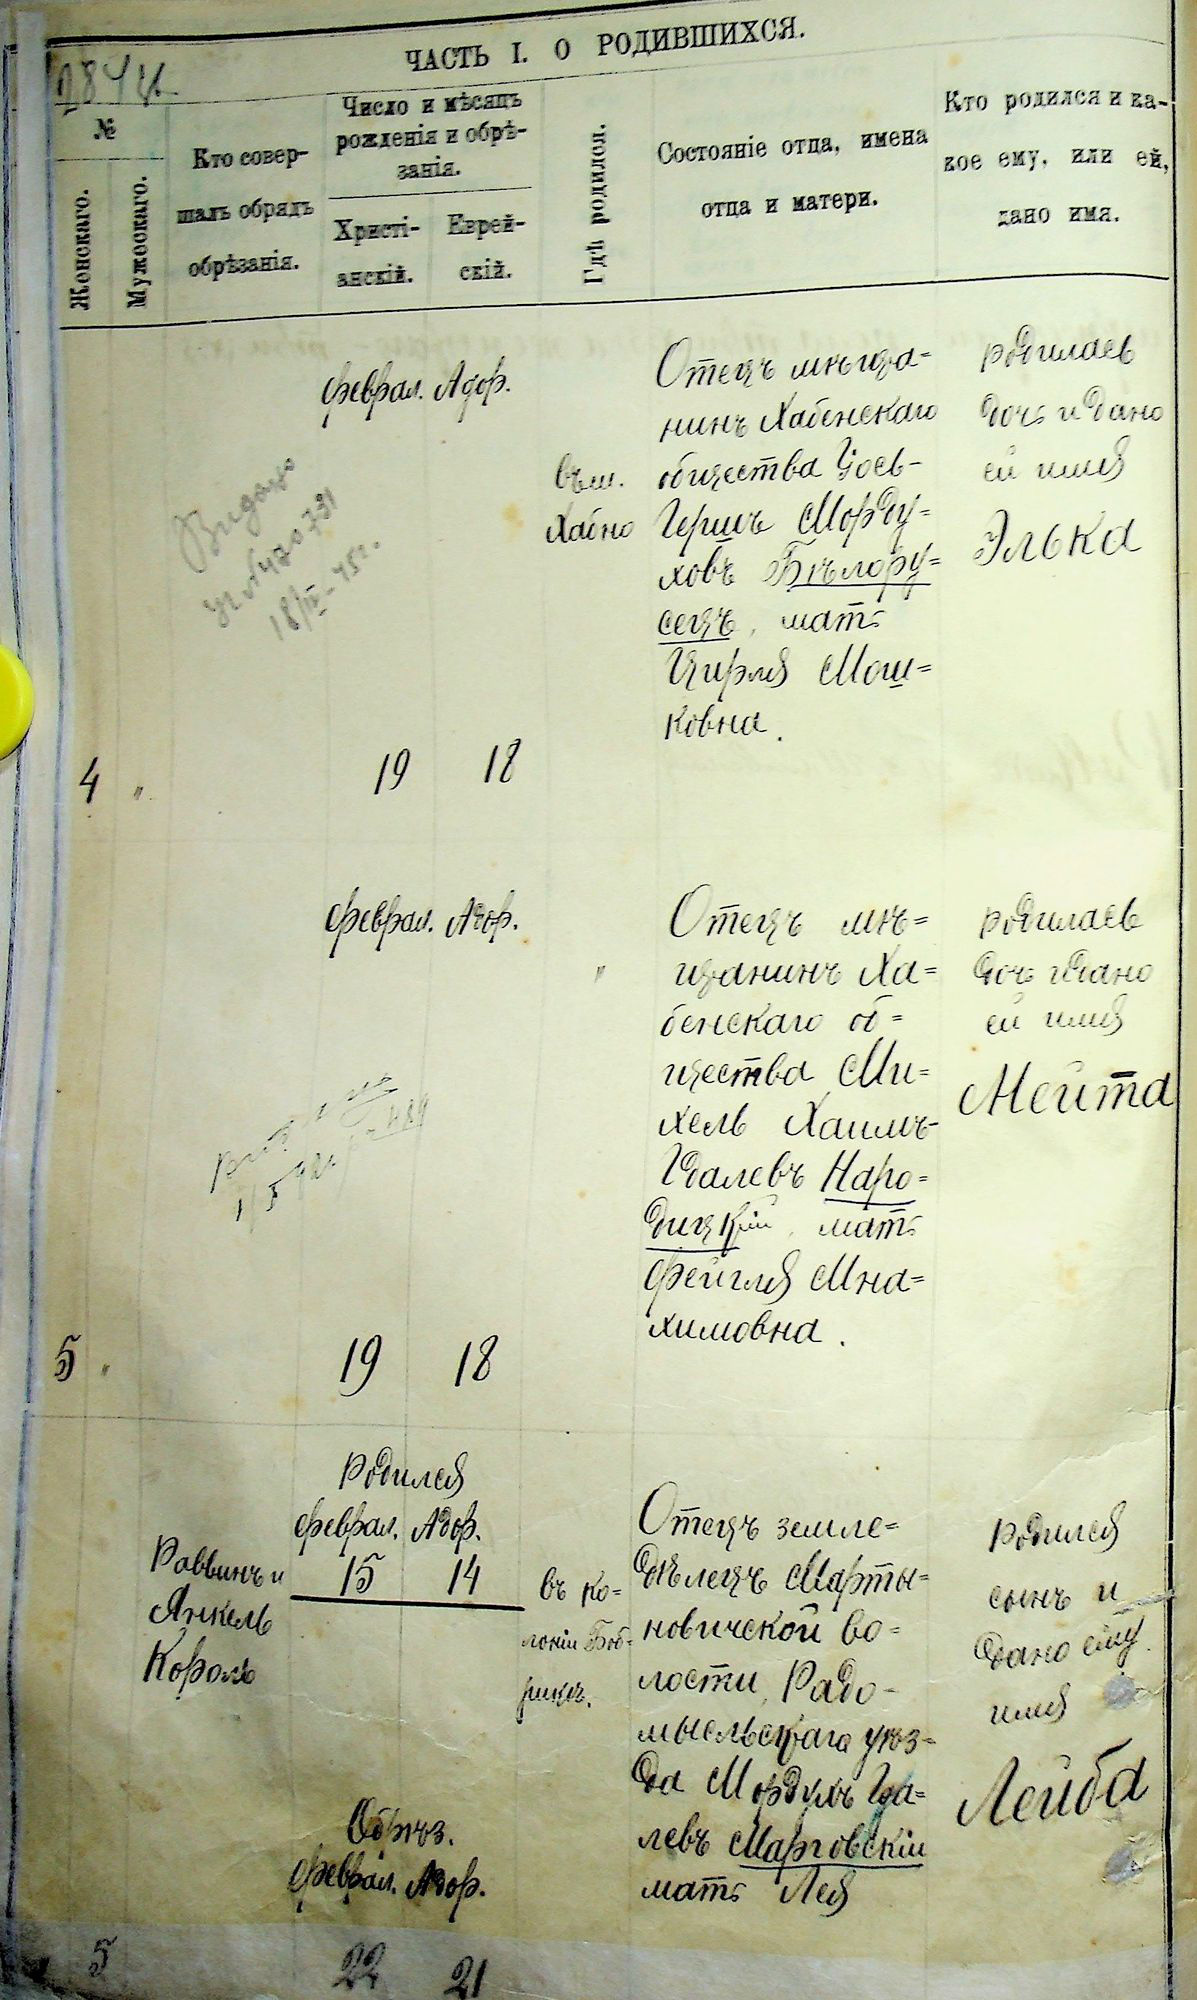 ЧАСТЬ I. О РОДИВШИХСЯ.
№
Женскаго.
Мужескаго.
Кто совер-
шалъ обрядъ
обрѣзанія.
Число и мѣсяцъ
рожденія и обрѣ-
занія.
Христі-
анскій.
Еврей-
скій.
Гдѣ родился.
Состояніе отца, имена
отца и матери.
Кто родился и ка-
кое ему, или ей,
дано имя.
4 "
Феврал. Адор.
19 18
въ м.
Хабно
Отецъ мѣща=
нинъ Хабенскаго
общества Іось-
Гершъ Морду=
ховъ Бѣлору=
сецъ, мать
Цирля Мош=
ковна.
родилась
дочь и дано
ей имя
Элька
5 "
Феврал. Адор.
19 18
"
Отецъ мѣ=
щанинъ Ха=
бенскаго об=
щества Ми=
хель Хаимъ-
Гдалевъ Наро=
дицкій, мать
Фейгля Мна=
химовна.
родилась
дочь и дано
ей имя
Мейта
5
Раввинъ и
Янкель
Король
Родился
Феврал. Адор.
15 14
Обрѣз.
Феврал. Адор.
22 21
въ ко=
лоніи
Отецъ земле=
дѣлецъ Марты=
новичской во=
лости, Радо-
мысльскаго уѣз=
да Мордухъ Гда=
левъ Марговскій
мать Лея
родился
сынъ и
дано ему
имя
Лейба